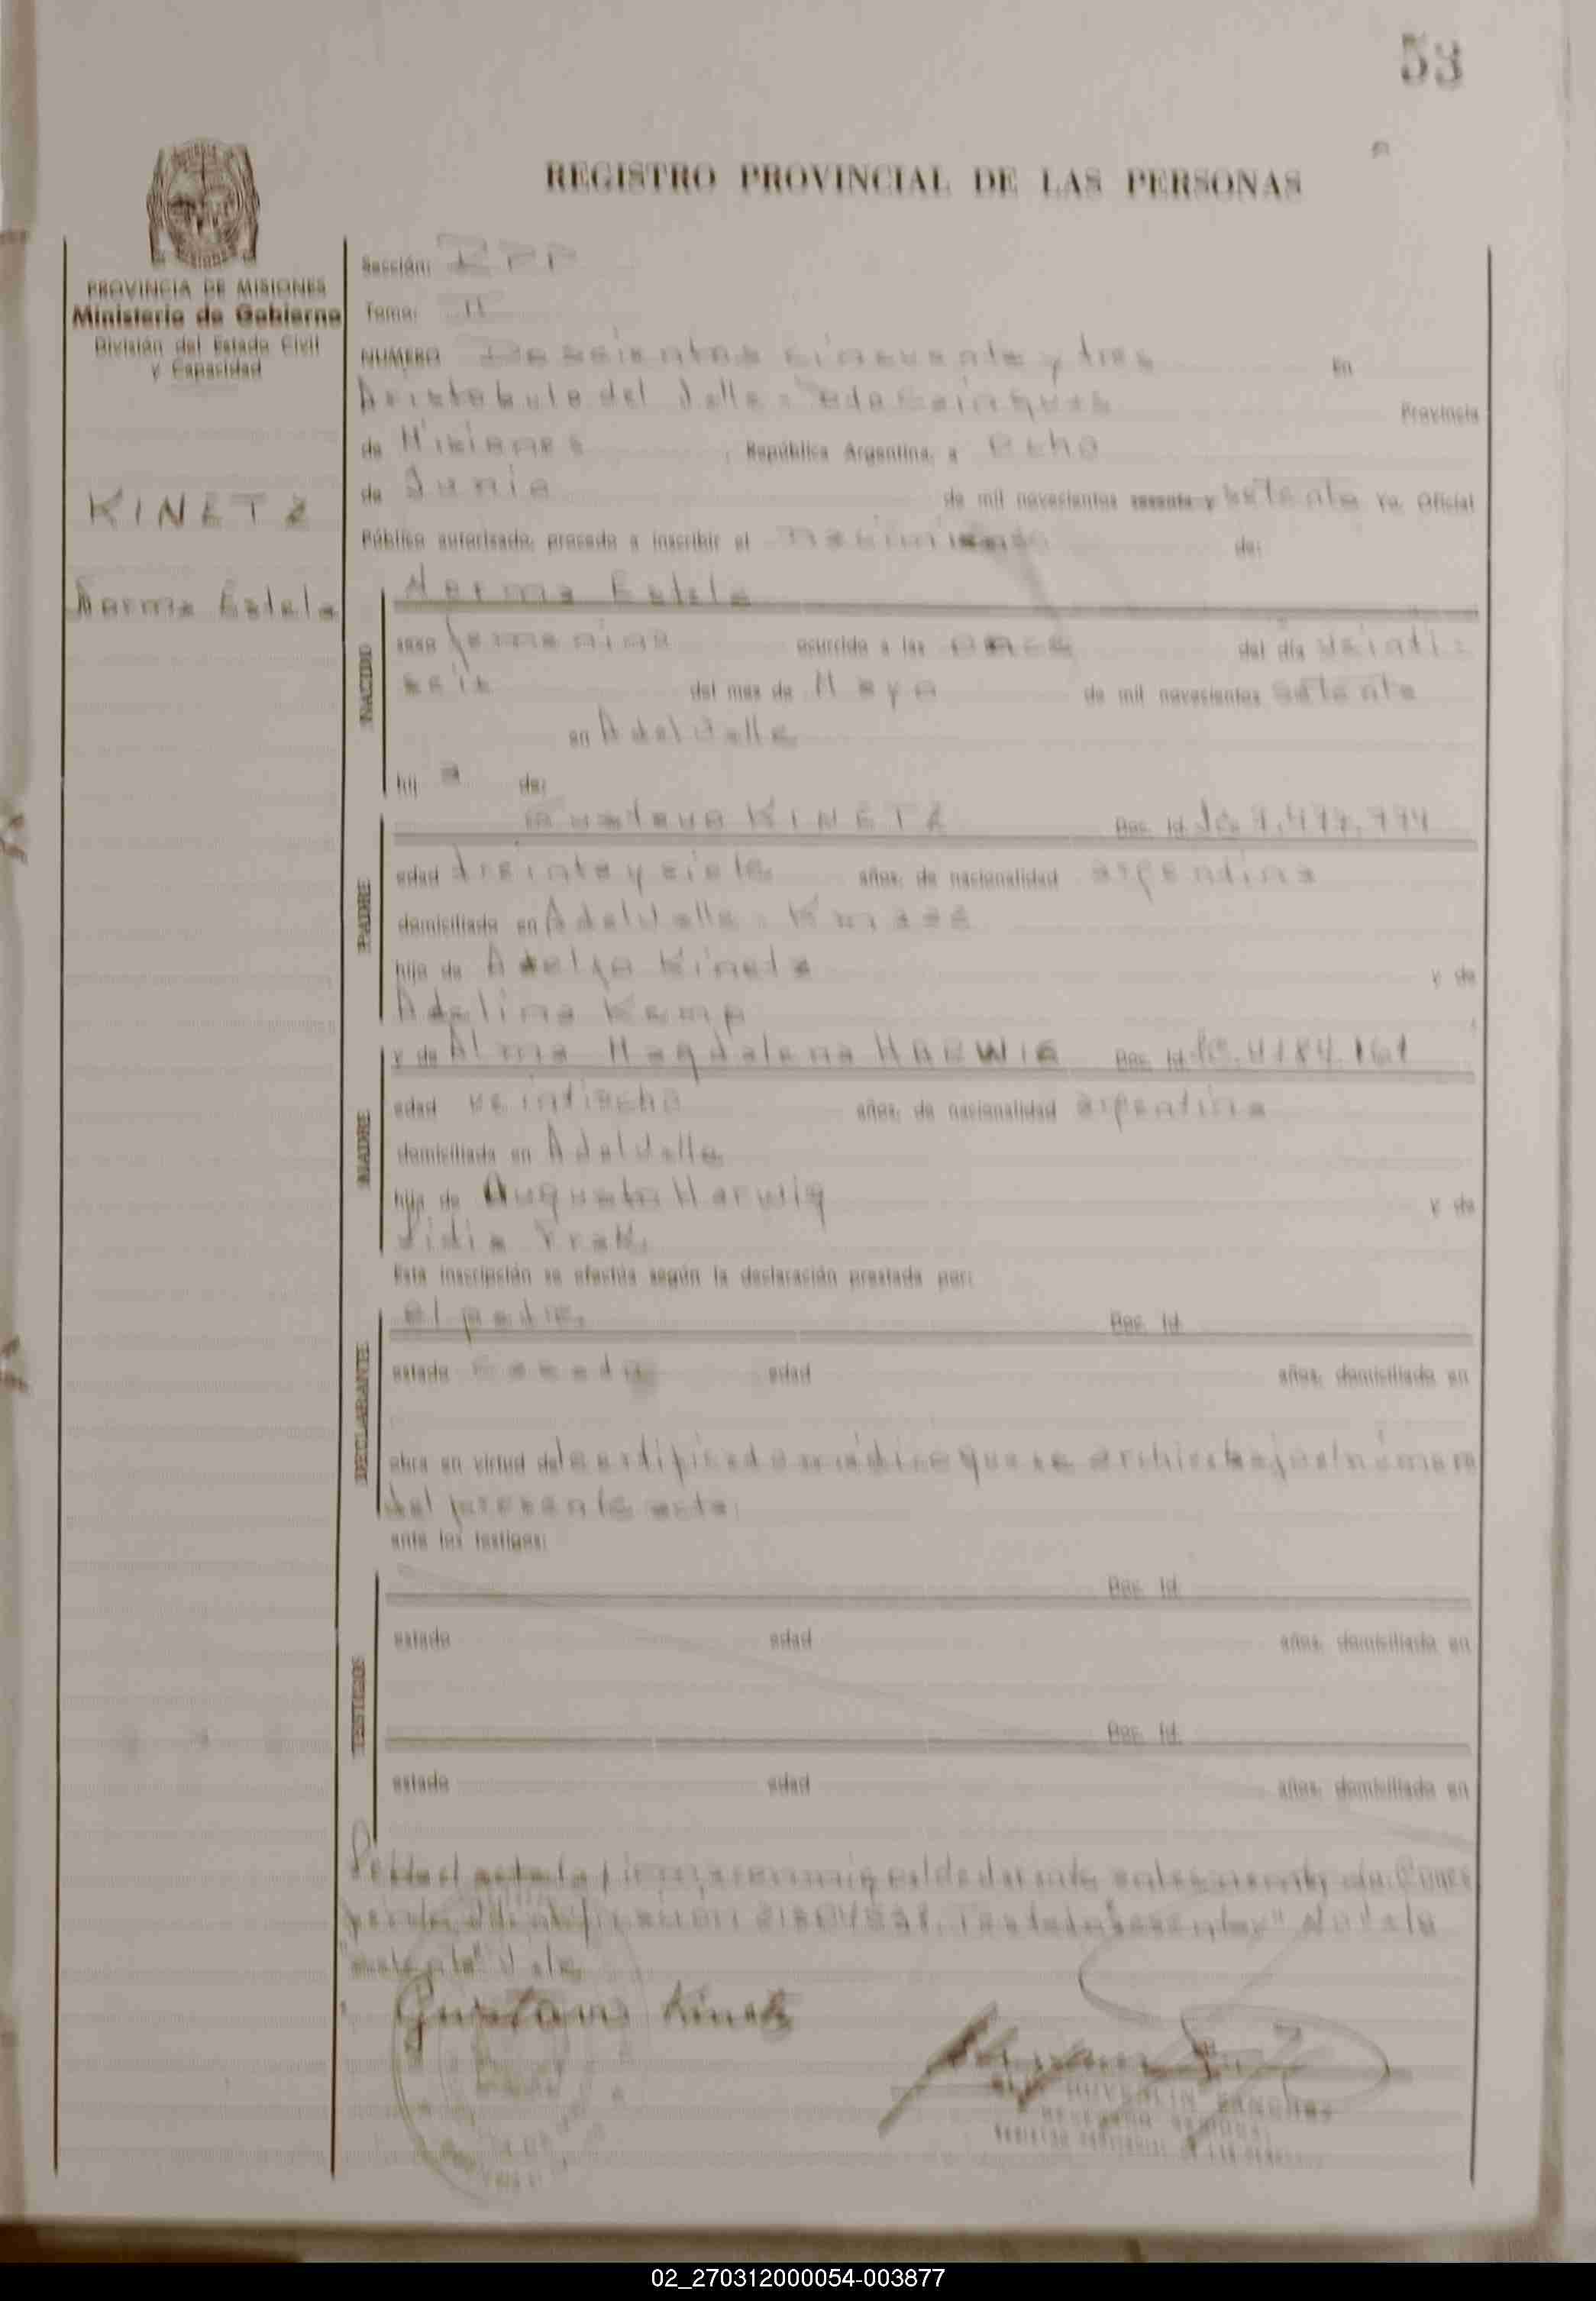 53
REGISTRO PROVINCIAL DE LAS PERSONAS
PROVINCIA DE MISIONES
Ministerio de Gobierno
División del Estado Civil
y Capacidad
KINETZ
Norma Estela
Sección:
Tomo: II
NUMERO Doscientos cincuenta y tres En
Aristobulo del Valle Provincia
de Misiones , República Argentina, a ocho
de Junio de mil novecientos sesenta y setenta Yo, Oficial
Público autorizado, procedo a inscribir el nacimiento de:
NACIDO
Norma Estela
sexo femenino ocurrido a las once del día veinti
seis del mes de Mayo de mil novecientos setenta
en A del Valle
hij a de:
PADRE
Gustavo KINETZ Doc. Id.
edad treinta y siete años, de nacionalidad argentina
domiciliado en A del Valle
hijo de Adolfo Kinetz y de
Adelina Kemp
MADRE
y de Alma Magdalena HARWIG Doc. Id.
edad veintiocho años, de nacionalidad argentina
domiciliada en A del Valle
hija de Augusto Harwig y de
Lidia
Esta inscripción se efectúa según la declaración prestada por:
DECLARANTE
el padre Doc. Id.
estado casado edad años, domiciliado en
obra en virtud del certificado médico que se archiva bajo el número
del presente acta.
ante los testigos:
TESTIGOS
Doc. Id.
estado edad años, domiciliado en
Doc. Id.
estado edad años, domiciliado en
Leída el acta la firma conmigo el declarante
"setenta" Vale
Gustavo Kinetz
02_270312000054-003877